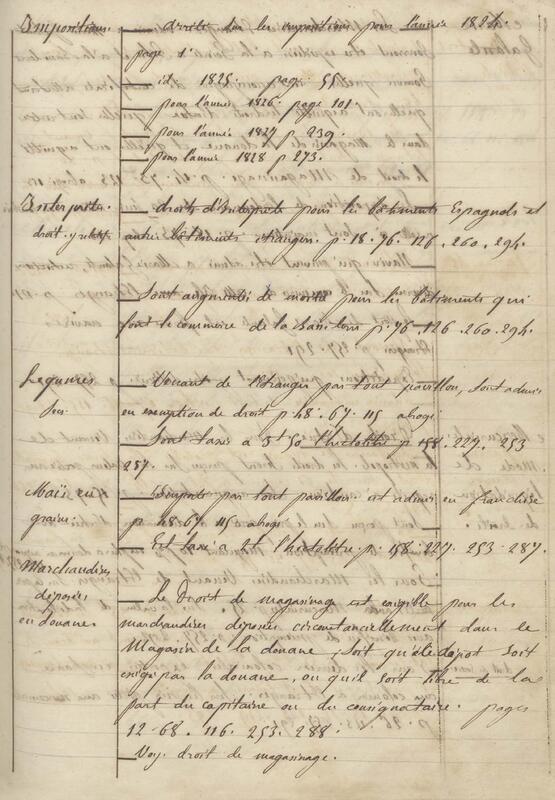 Impositions. — arrêté sur les impositions pour l'année 1824.
page 1.
— id. 1825. page 55.
— pour l'année 1826. page 101.
— pour l'année 1827 p 239.
— pour l'année 1828 p 273.
Interprètes. — droits d'Interprete pour les bâtiments Espagnols et
droit y relatif autres bâtiments étrangers. p. 18. 76. 126. 260. 294.
— Sont augmentés de moitié pour les bâtiments qui
font le commerce de la p. 76. 126. 260. 294.
Legumes — Venant de l'Etranger par tout pavillon, sont admis
secs. en exemption de droit p 48. 67. 115 abrogé
— Sont taxés a 3f 50 l'hectolitre p 158. 227. 253
287.
Maïs en — Importé par tout pavillon est admis en franchise
grains. p. 48. 67 115 abrogé
— Est taxé a 2f l'hectolitre. p. 158. 227. 253. 287.
Marchandises
déposées — Le Droit de magasinage est exigible pour les
en douane marchandises déposées circonstanciellement dans le
Magasin de la douane, soit que le dépot soit
exigé par la douane, ou qu'il soit libre de la
part du capitaine ou du consignataire. pages
12. 68. 116. 253. 288.
— Voy. droit de magasinage.